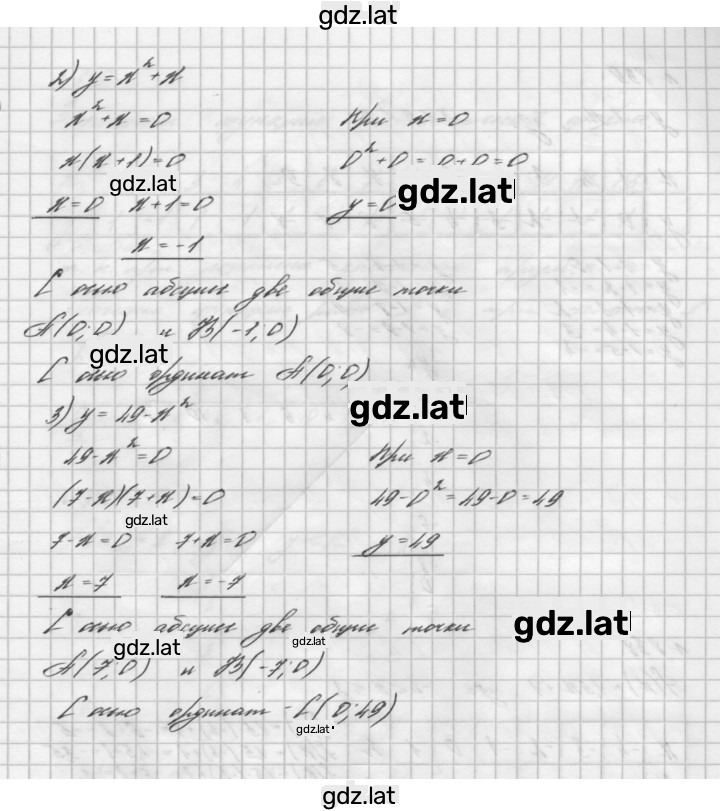 gdz.lat
2) y = x² + x
x² + x = 0 При x = 0
x(x + 1) = 0 0² + 0 = 0 + 0 = 0
gdz.lat gdz.lat
x = 0 x + 1 = 0 y = 0
x = -1
С осью абсцисс две общие точки
A(0; 0) и B(-1; 0)
gdz.lat
С осью ординат A(0; 0)
gdz.lat
3) y = 49 - x²
49 - x² = 0 При x = 0
(7 - x)(7 + x) = 0 49 - 0² = 49 - 0 = 49
gdz.lat
7 - x = 0 7 + x = 0 y = 49
x = 7 x = -7
С осью абсцисс две общие точки
gdz.lat gdz.lat gdz.lat
A(7; 0) и B(-7; 0)
С осью ординат - C(0; 49)
gdz.lat
gdz.lat